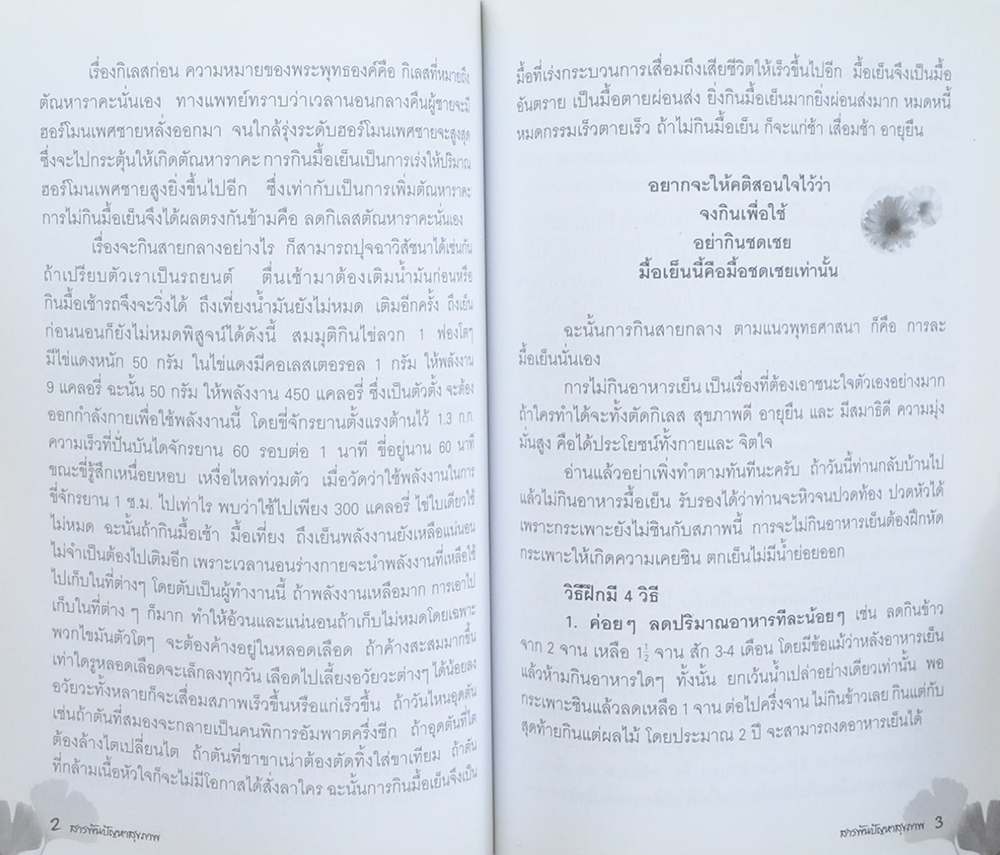 เรื่องกิเลสก่อน ความหมายของพระพุทธองค์คือ กิเลสที่หมายถึง
ตัณหาราคะนั่นเอง ทางแพทย์ทราบว่าเวลานอนกลางคืนผู้ชายจะมี
ฮอร์โมนเพศชายหลั่งออกมา จนใกล้รุ่งระดับฮอร์โมนเพศชายจะสูงสุด
ซึ่งจะไปกระตุ้นให้เกิดตัณหาราคะ การกินมื้อเย็นเป็นการเร่งให้ปริมาณ
ฮอร์โมนเพศชายสูงยิ่งขึ้นไปอีก ซึ่งเท่ากับเป็นการเพิ่มตัณหาราคะ
การไม่กินมื้อเย็นจึงได้ผลตรงกันข้ามคือ ลดกิเลสตัณหาราคะนั่นเอง
เรื่องจะกินสายกลางอย่างไร ก็สามารถปุจฉาวิสัชนาได้เช่นกัน
ถ้าเปรียบตัวเราเป็นรถยนต์ ตื่นเช้ามาต้องเติมน้ำมันก่อนหรือ
กินมื้อเช้ารถจึงจะวิ่งได้ ถึงเที่ยงน้ำมันยังไม่หมด เติมอีกครั้ง ถึงเย็น
ก่อนนอนก็ยังไม่หมดพิสูจน์ได้ดังนี้ สมมุติกินไข่ลวก 1 ฟองโตๆ
มีไข่แดงหนัก 50 กรัม ในไข่แดงมีคอเลสเตอรอล 1 กรัม ให้พลังงาน
9 แคลอรี่ ฉะนั้น 50 กรัม ให้พลังงาน 450 แคลอรี่ ซึ่งเป็นตัวตั้ง จะต้อง
ออกกำลังกายเพื่อใช้พลังงานนี้ โดยขี่จักรยานตั้งแรงต้านไว้ 1.3 ก.ก.
ความเร็วที่ปั่นบันไดจักรยาน 60 รอบต่อ 1 นาที ขี่อยู่นาน 60 นาที
ขณะขี่รู้สึกเหนื่อยหอบ เหงื่อไหลท่วมตัว เมื่อวัดว่าใช้พลังงานในการ
ขี่จักรยาน 1 ช.ม. ไปเท่าไร พบว่าใช้ไปเพียง 300 แคลอรี่ ไข่ใบเดียวใช้
ไม่หมด ฉะนั้นถ้ากินมื้อเช้า มื้อเที่ยง ถึงเย็นพลังงานยังเหลือแน่นอน
ไม่จำเป็นต้องไปเติมอีก เพราะเวลานอนร่างกายจะนำพลังงานที่เหลือใช้
ไปเก็บในที่ต่างๆ โดยตับเป็นผู้ทำงานนี้ ถ้าพลังงานเหลือมาก การเอาไป
เก็บในที่ต่าง ๆ ก็มาก ทำให้อ้วนและแน่นอนถ้าเก็บไม่หมดโดยเฉพาะ
พวกไขมันตัวโตๆ จะต้องค้างอยู่ในหลอดเลือด ถ้าค้างสะสมมากขึ้น
เท่าใดรูหลอดเลือดจะเล็กลงทุกวัน เลือดไปเลี้ยงอวัยวะต่างๆ ได้น้อยลง
อวัยวะทั้งหลายก็จะเสื่อมสภาพเร็วขึ้นหรือแก่เร็วขึ้น ถ้าวันไหนอุดตัน
เช่นถ้าตันที่สมองจะกลายเป็นคนพิการอัมพาตครึ่งซีก ถ้าอุดตันที่ไต
ต้องล้างไตเปลี่ยนไต ถ้าตันที่ขาขาเน่าต้องตัดทิ้งใส่ขาเทียม ถ้าตัน
ที่กล้ามเนื้อหัวใจก็จะไม่มีโอกาสได้สั่งลาใคร ฉะนั้นการกินมื้อเย็นจึงเป็น
2 สารพันปัญหาสุขภาพ
มื้อที่เร่งกระบวนการเสื่อมถึงเสียชีวิตให้เร็วขึ้นไปอีก มื้อเย็นจึงเป็นมื้อ
อันตราย เป็นมื้อตายผ่อนส่ง ยิ่งกินมื้อเย็นมากยิ่งผ่อนส่งมาก หมดหนี้
หมดกรรมเร็วตายเร็ว ถ้าไม่กินมื้อเย็น ก็จะแก่ช้า เสื่อมช้า อายุยืน
อยากจะให้คติสอนใจไว้ว่า
จงกินเพื่อใช้
อย่ากินชดเชย
มื้อเย็นนี้คือมื้อชดเชยเท่านั้น
ฉะนั้นการกินสายกลาง ตามแนวพุทธศาสนา ก็คือ การละ
มื้อเย็นนั่นเอง
การไม่กินอาหารเย็น เป็นเรื่องที่ต้องเอาชนะใจตัวเองอย่างมาก
ถ้าใครทำได้จะทั้งตัดกิเลส สุขภาพดี อายุยืน และ มีสมาธิดี ความมุ่ง
มั่นสูง คือได้ประโยชน์ทั้งกายและ จิตใจ
อ่านแล้วอย่าเพิ่งทำตามทันทีนะครับ ถ้าวันนี้ท่านกลับบ้านไป
แล้วไม่กินอาหารมื้อเย็น รับรองได้ว่าท่านจะหิวจนปวดท้อง ปวดหัวได้
เพราะกระเพาะยังไม่ชินกับสภาพนี้ การจะไม่กินอาหารเย็นต้องฝึกหัด
กระเพาะให้เกิดความเคยชิน ตกเย็นไม่มีน้ำย่อยออก
วิธีฝึกมี 4 วิธี
1. ค่อยๆ ลดปริมาณอาหารทีละน้อยๆ เช่น ลดกินข้าว
จาก 2 จาน เหลือ 1½ จาน สัก 3-4 เดือน โดยมีข้อแม้ว่าหลังอาหารเย็น
แล้วห้ามกินอาหารใดๆ ทั้งนั้น ยกเว้นน้ำเปล่าอย่างเดียวเท่านั้น พอ
กระเพาะชินแล้วลดเหลือ 1 จาน ต่อไปครึ่งจาน ไม่กินข้าวเลย กินแต่กับ
สุดท้ายกินแต่ผลไม้ โดยประมาณ 2 ปี จะสามารถงดอาหารเย็นได้
สารพันปัญหาสุขภาพ 3